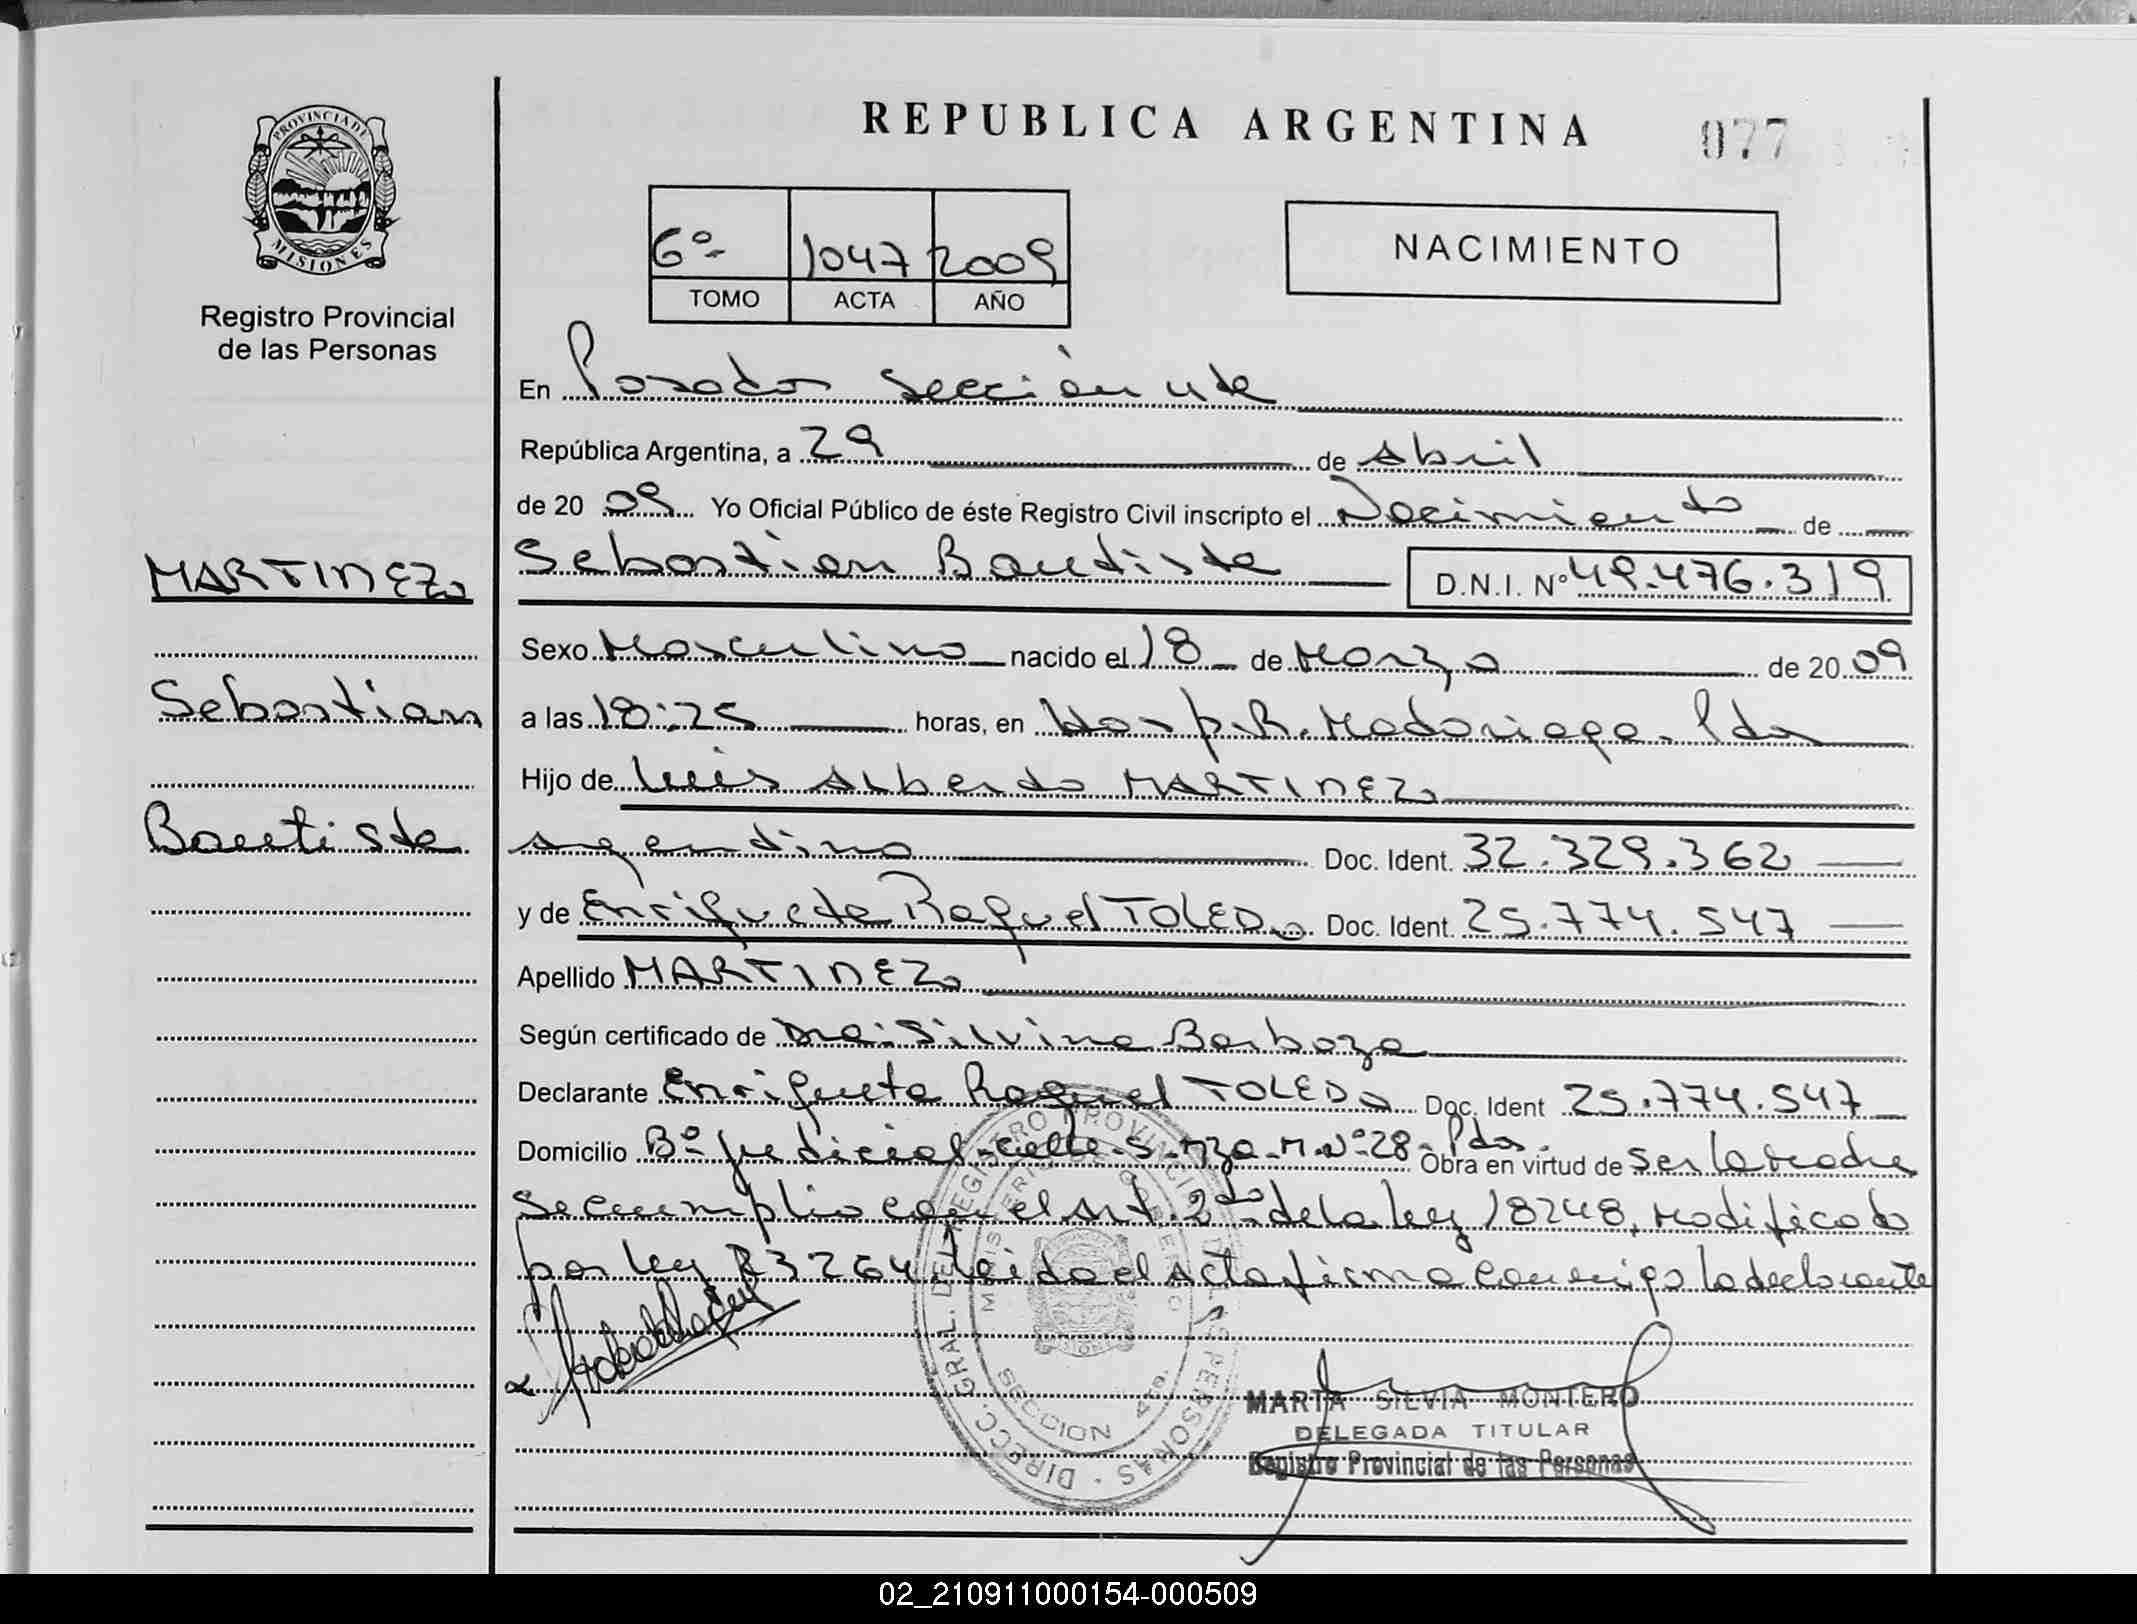 REPUBLICA ARGENTINA
077
PROVINCIA DE
MISIONES
Registro Provincial
de las Personas
6º 1047 2009
TOMO ACTA AÑO
NACIMIENTO
En Posadas Sección 4ta
República Argentina, a 29 de Abril
de 20 09 Yo Oficial Público de éste Registro Civil inscripto el Nacimiento de
Sebastian Bautista D.N.I. Nº 49.476.319
MARTINEZ
Sebastian
Bautista
Sexo Masculino nacido el 18 de Marzo de 20 09
a las 18:25 horas, en Hosp. R. Madariaga. Pdas
Hijo de Luis Alberto MARTINEZ
argentino Doc. Ident. 32.329.362
y de Enriqueta Raquel TOLEDO Doc. Ident. 25.774.547
Apellido MARTINEZ
Según certificado de Dra: Silvina Barboza
Declarante Enriqueta Raquel TOLEDO Doc. Ident 25.774.547
Domicilio Bº Judicial - Calle. S - Mza - M. Nº 28 - Pdas. Obra en virtud de ser la madre
se cumplio con el art. 2do de la ley 18248, modificado
por ley 23264 leida el acta firma conmigo la declarante
DIRECC. GRAL. DEL REGISTRO PROVINCIAL DE LAS PERSONAS
MINISTERIO DE GOBIERNO
SECCION 4ta.
MARTA SILVIA MONTERO
DELEGADA TITULAR
Registro Provincial de las Personas
02_210911000154-000509